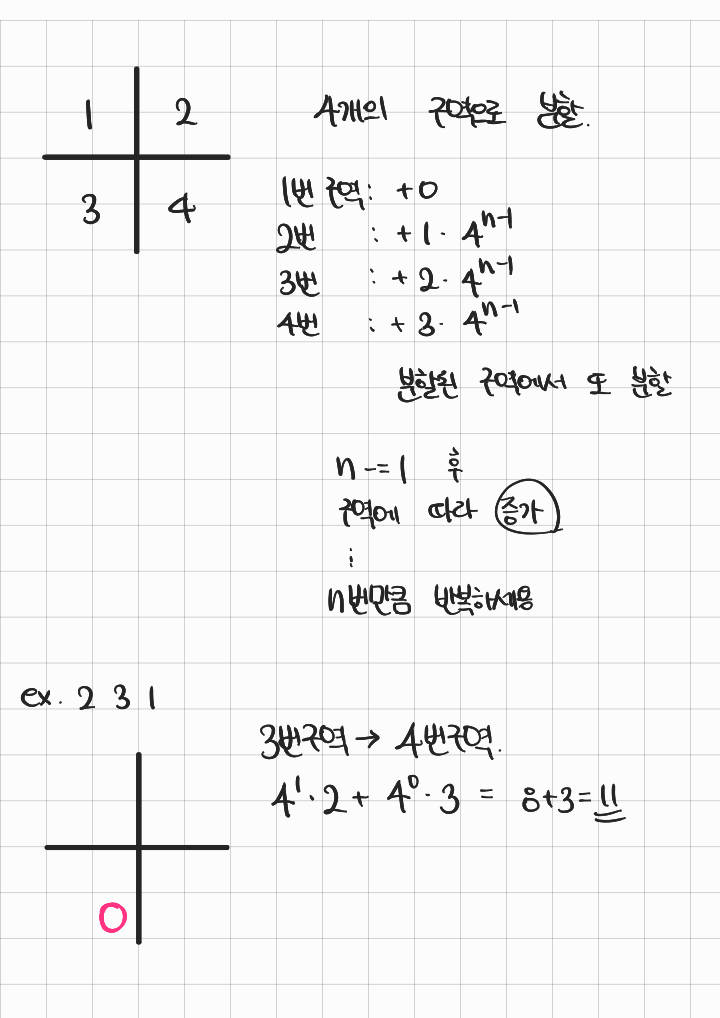 1 2
3 4
4개의 구역으로 분할.
1번 구역: +0
2번 : +1· 4^{n-1}
3번 : +2· 4^{n-1}
4번 : +3· 4^{n-1}
분할된 구역에서 또 분할
n -= 1 후
구역에 따라 증가
⋮
n번만큼 반복하세용
ex. 2 3 1
3번구역 → 4번구역.
4^1·2 + 4^0·3 = 8+3=11
O